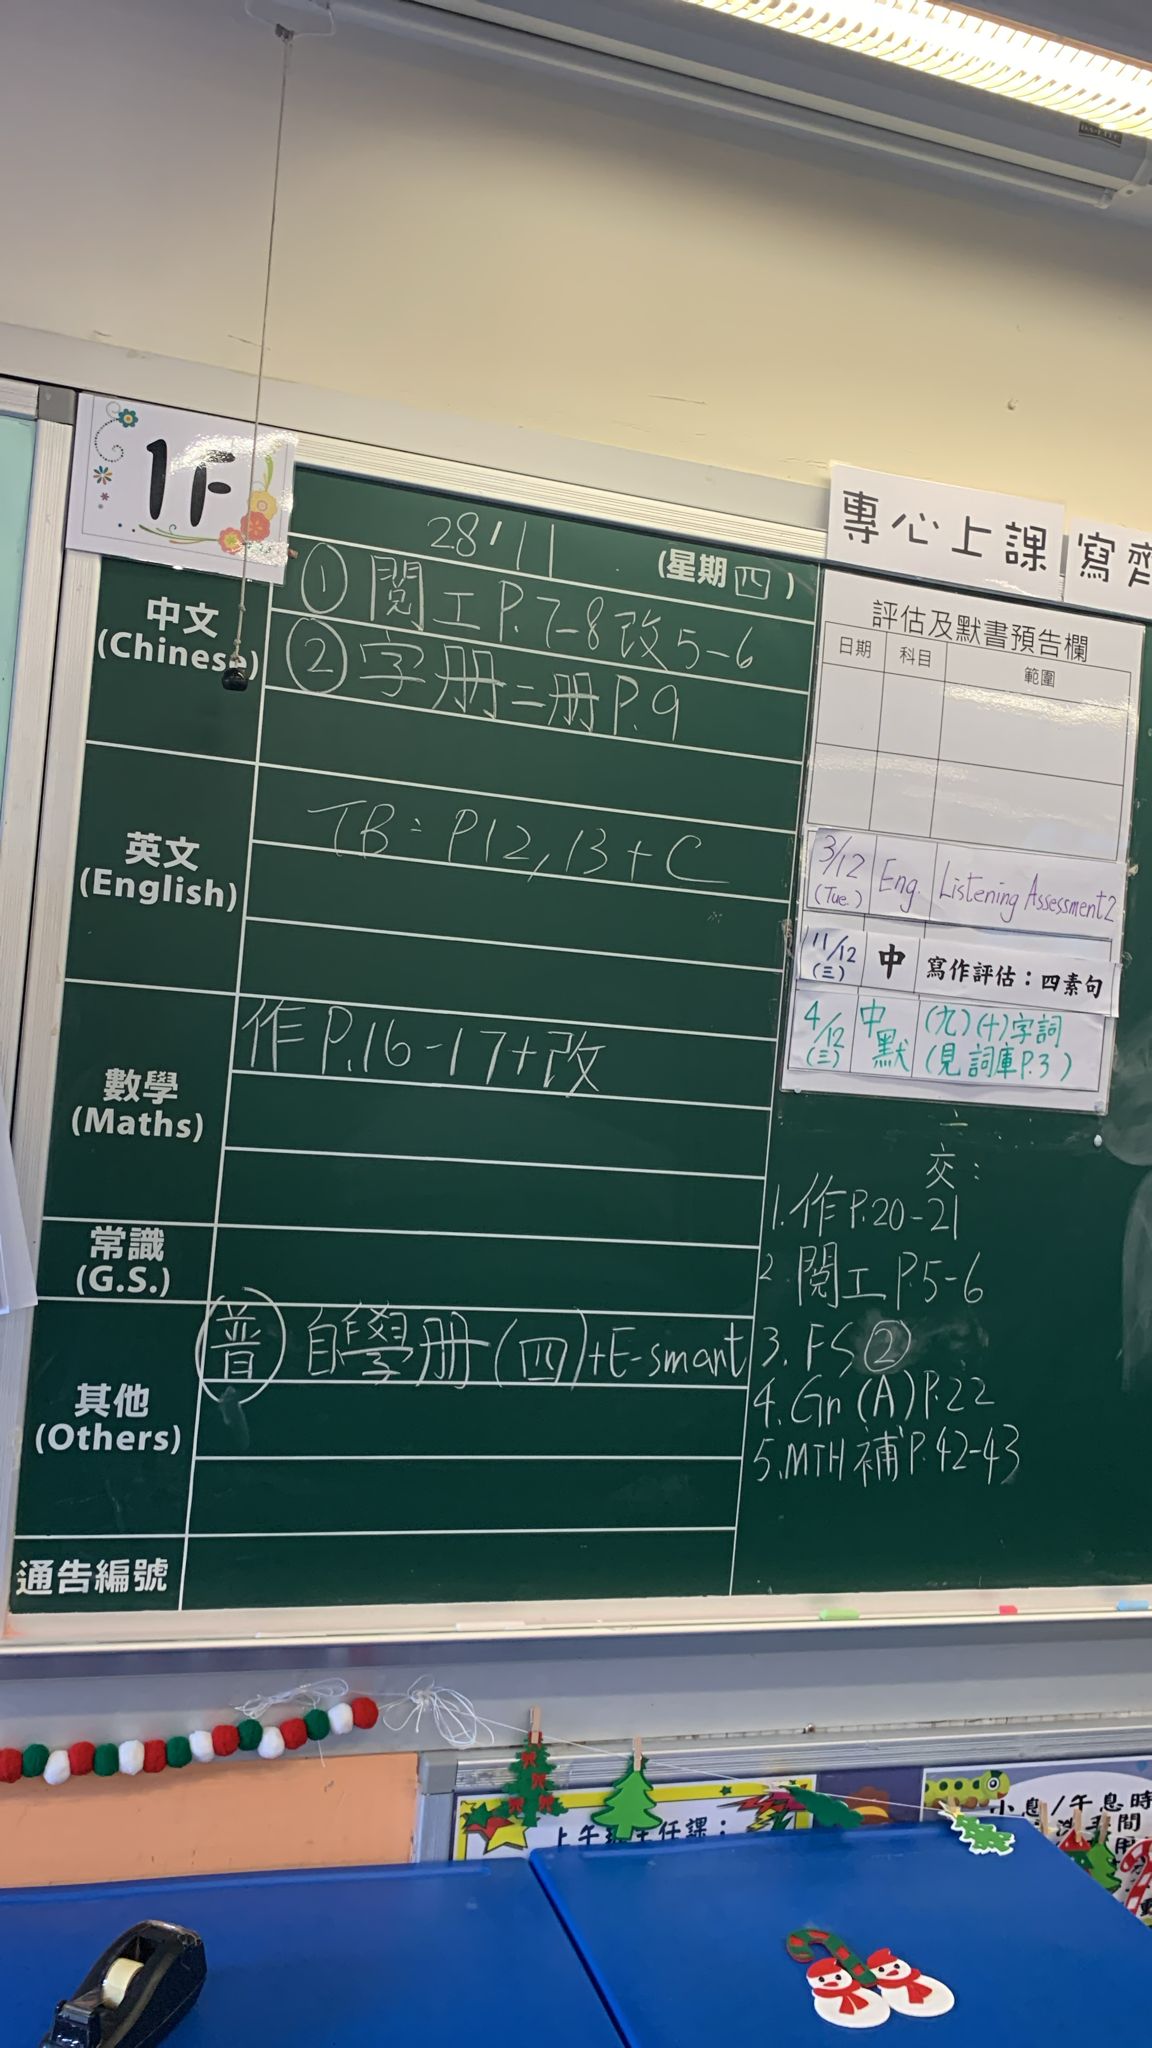 1F
專心上課
寫齊
28/11 (星期四)
中文
(Chinese)
① 閱工 P.7-8 改 5-6
② 字册二册 P.9
英文
(English)
TB: P12, 13 + C
數學
(Maths)
作 P.16-17+改
常識
(G.S.)
其他
(Others)
普 自學册(四)+E-smart
通告編號
評估及默書預告欄
日期 科目 範圍
3/12 (Tue.) Eng. Listening Assessment 2
11/12 (三) 中 寫作評估：四素句
4/12 (三) 中默 (九)(十)字詞 (見詞庫P.3)
交：
1. 作 P.20-21
2. 閱工 P.5-6
3. FS ②
4. Gn (A) P.22
5. MTH 補 P.42-43
小息/午息時